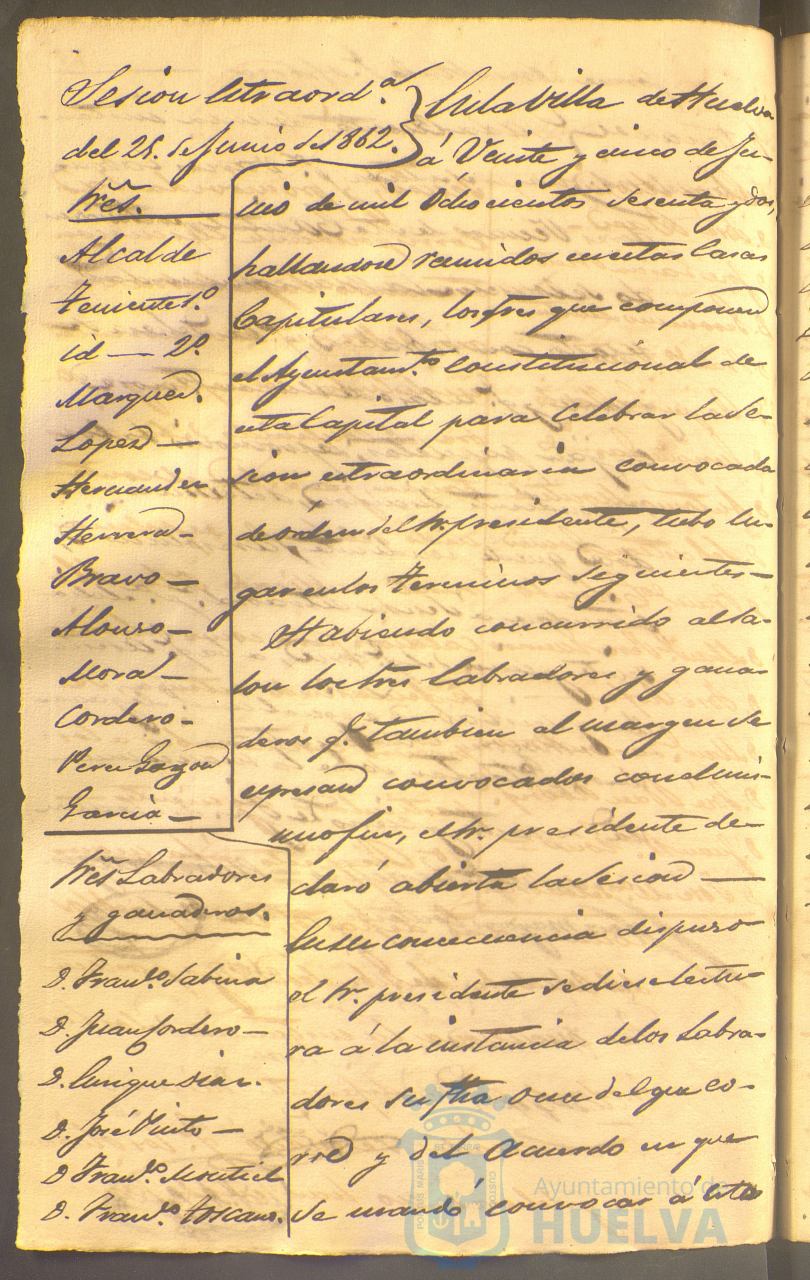 Sesion Estraord.ª
del 25. de Junio de 1862.
Sres.
Alcalde
Teniente 1.º
id — 2º.
Marquez.
Lopez —
Hernandez
Herrera —
Bravo —
Alonso —
Mora —
Cordero —
Perez Garzon
Garcia —
Sres Labradores
y ganaderos.
D. Franco. Sabina
D. Juan Cordero —
D. Enrique Diaz.
D. José Pinto —
D. Franco. Montiel
D. Franco. Toscano.
En la Villa de Huelva
á Veinte y cinco de Ju-
nio de mil Ochocientos sesenta y dos,
hallandose reunidos en estas Casas
Capitulares, los Sres que componen
el Ayuntamto. Constitucional de
esta Capital para Celebrar la Se-
sion estraordinaria convocada
de órden del Sr. presidente, tubo lu-
gar en los terminos siguientes —
Habiendo concurrido al Sa-
lon los Sres Labradores y gana-
deros q. tambien al margen se
espresan convocados con el mis-
mo fin, el Sr. presidente de-
claró abierta la Sesion —
En su consecuencia dispuso
el Sr. presidente se diese lectu-
ra á la instancia de los Labra-
dores su fha once del que co-
rre y del Acuerdo en que
se mandó convocar á estos
Ayuntamiento de
HUELVA